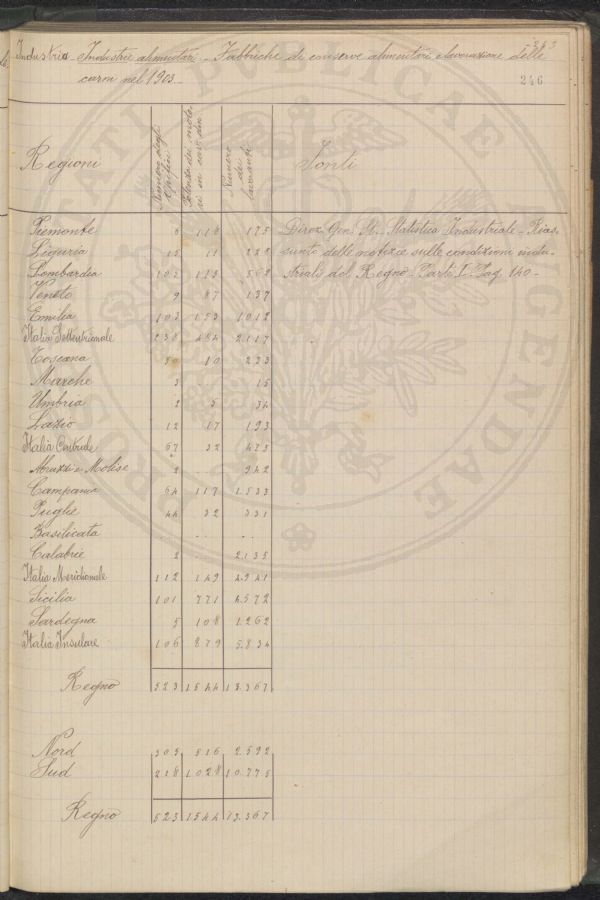 Industria - Industrie alimentari - Fabbriche di conserve alimentari e lavorazione delle
carni nel 1903 -
246
Regioni Numero degli Opifici Potenza dei motori in cav. din. Numero dei lavoranti Fonti
Piemonte 6 118 175 Direz. Gen. St. Statistica Industriale - Rias-
Liguria 15 11 222 sunto delle notizie sulle condizioni indu-
Lombardia 105 115 562 striali del Regno - Parte I - Pag. 140 -
Veneto 9 87 137
Emilia 103 153 1012
Italia Settentrionale 238 484 2.117
Toscana 50 10 233
Marche 3 .. 15
Umbria 2 5 34
Lazio 12 17 193
Italia Centrale 67 32 475
Abruzzi e Molise 2 .. 942
Campania 64 117 1.533
Puglie 44 32 331
Basilicata .. .. ..
Calabrie 2 .. 2.135
Italia Meridionale 112 149 4.941
Sicilia 101 771 4.572
Sardegna 5 108 1.262
Italia Insulare 106 879 5.834
Regno 523 1544 13.367
Nord 305 516 2.592
Sud 218 1.028 10.775
Regno 523 1544 13.367